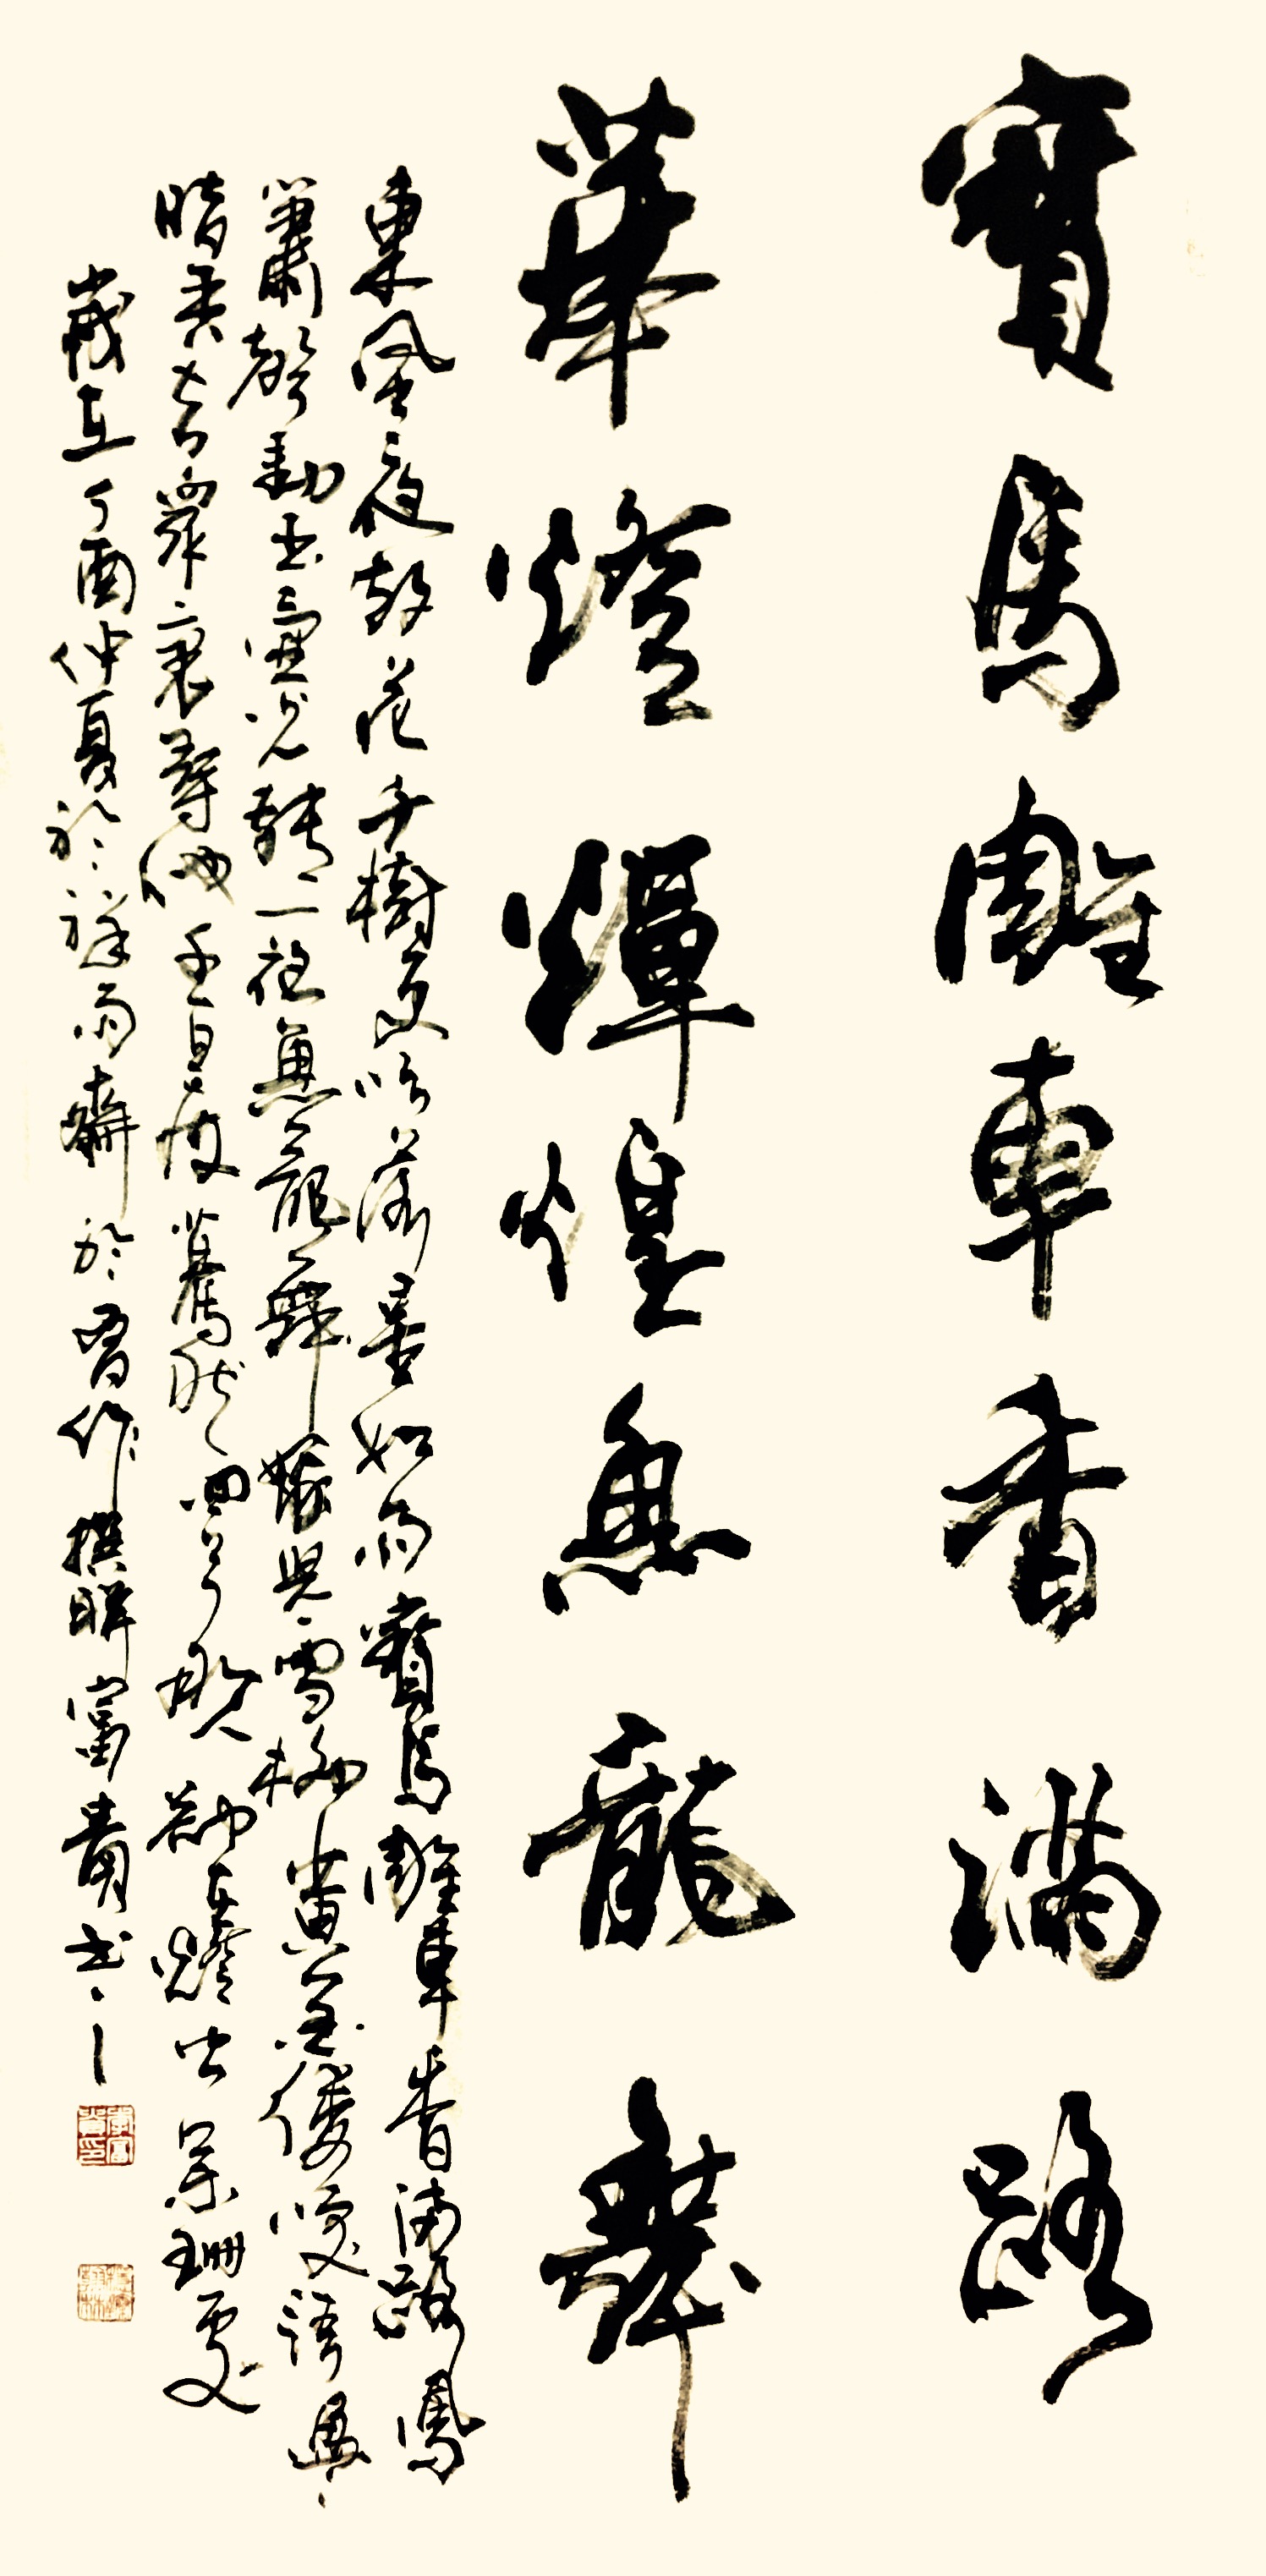 寶馬雕車香滿路
華燈輝煌魚龍舞
東風夜放花千樹更吹落星如雨寶馬雕車香滿路鳳
簫聲動玉壺光轉一夜魚龍舞蛾兒雪柳黃金縷咲語盈〻
暗香去眾裏尋他千百度驀然回首那人卻在燈火闌珊處
歲在丁酉仲夏於祥雨齋於習作撰聯富貴書之
李富貴印